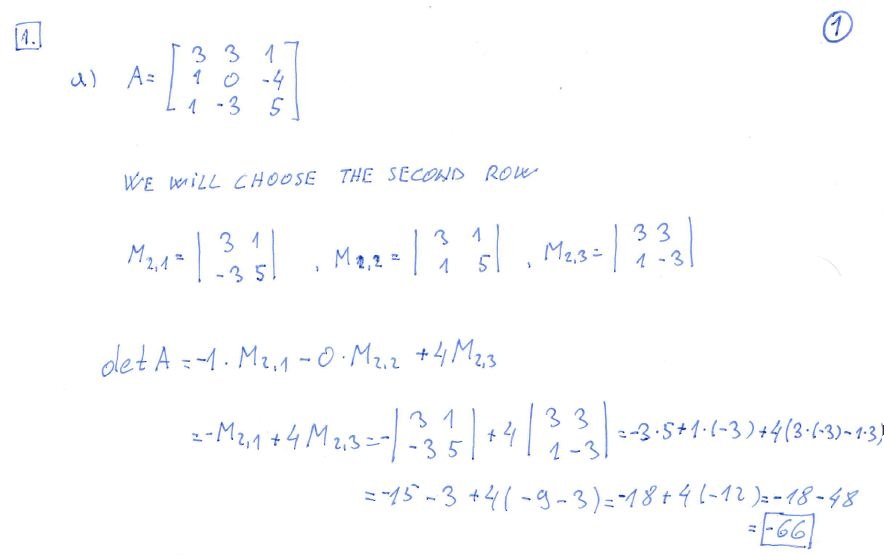 1.
1
a) A = [ 3 3 1
1 0 -4
1 -3 5 ]
WE WILL CHOOSE THE SECOND ROW
M2,1 = | 3 1 | , M2,2 = | 3 1 | , M2,3 = | 3 3 |
| -3 5 | | 1 5 | | 1 -3 |
det A = -1 · M2,1 - 0 · M2,2 + 4 M2,3
= -M2,1 + 4 M2,3 = - | 3 1 | + 4 | 3 3 | = -3·5 + 1·(-3) + 4(3·(-3) - 1·3)
| -3 5 | | 1 -3 |
= -15 - 3 + 4(-9 - 3) = -18 + 4(-12) = -18 - 48
= -66